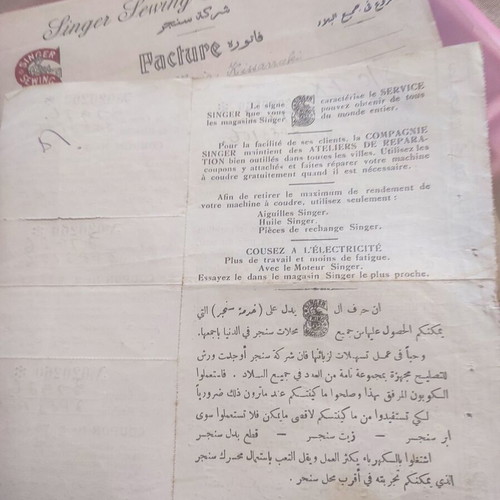 Singer Sewing
شركة سنجر
Facture فاتورة
SINGER
SEWING
Le signe S caractérise le SERVICE
SINGER que vous pouvez obtenir de tous
les magasins Singer. du monde entier.
Pour la facilité de ses clients, la COMPAGNIE
SINGER maintient des ATELIERS DE REPARA-
TION bien outillés dans toutes les villes. Utilisez les
coupons y attachés et faites réparer votre machine
à coudre gratuitement quand il est nécessaire.
Afin de retirer le maximum de rendement de
votre machine à coudre, utilisez seulement :
Aiguilles Singer.
Huile Singer.
Pièces de rechange Singer.
COUSEZ A L'ÉLECTRICITÉ
Plus de travail et moins de fatigue.
Avec le Moteur Singer.
Essayez le dans le magasin Singer le plus proche.
ان حرف ال S يدل على (خدمة سنجر) التي
يمكنكم الحصول عليها من جميع محلات سنجر في الدنيا باجمعها.
وحباً في عمل تسهيلات لزبائنها فان شركة سنجر أوجدت ورش
للتصليح مجهزة بمجموعة تامة من العدد في جميع البلاد . فاستعملوا
الكوبون المرفق بهذا وصلحوا ماكينتكم عند ما ترون ذلك ضرورياً
لكي تستفيدوا من ماكينتكم لاقصى ما يمكن فلا تستعملوا سوى
ابر سنجر — زيت سنجر — قطع بدل سنجر
اشتغلوا بالكهرباء يكثر العمل ويقل التعب باستعمال محرك سنجر
الذي يمكنكم تجربته في أقرب محل سنجر .